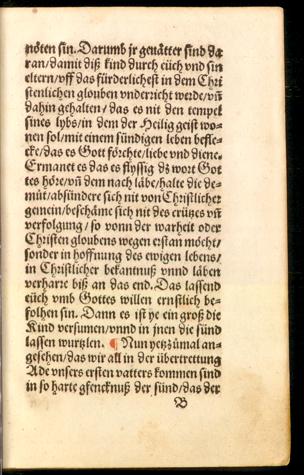 nöten sin. Darumb jr genätter sind da
ran/damit diß kind durch eüch vnd sin
eltern/vff das fürderlichest in dem Chri
stenlichen glouben vnderricht werde/vñ
dahin gehalten/das es nit den tempel
sines lybs/in dem der Heilig geist wo-
nen sol/mit einem sündigen leben befle-
cke/das es Gott förchte/liebe vnd diene.
Ermanet es das es flyssig dz wort Got
tes höre/vñ dem nach läbe/halte die de-
müt/absündere sich nit von Christlicher
gemein/beschäme sich nit des crützes vñ
verfolgung/so vonn der warheit oder
Christen gloubens wegen erstan möcht/
sonder in hoffnung des ewigen lebens/
in Christlicher bekantnuß vnnd läben
verharre biß an das end. Das lassend
eüch vmb Gottes willen ernstlich be-
folhen sin. Dann es ist ye ein groß die
Kind versumen/vnnd in jnen die sünd
lassen wurtzlen. ¶ Nun yetz zůmal an-
gesehen/das wir all in der übertrettung
Ade vnsers ersten vatters kommen sind
in so harte gfencknuß der sünd/das der
B